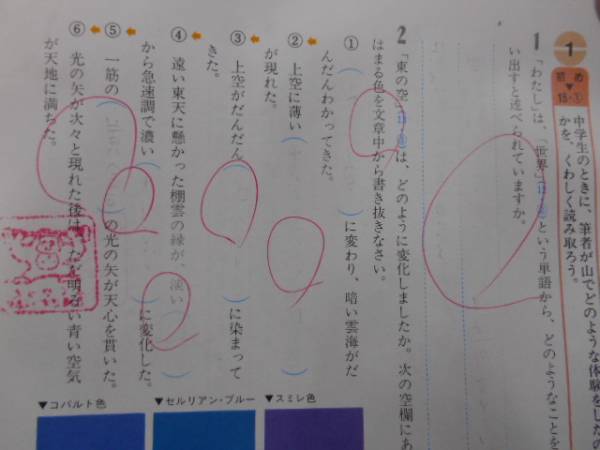 1
初め▼15・①
中学生のときに、筆者が山でどのような体験をしたの
かを、くわしく読み取ろう。
1 「わたし」は、「世界」という単語から、どのようなことを
い出すと述べられていますか。
2 「東の空」は、どのように変化しましたか。次の空欄にあ
はまる色を文章中から書き抜きなさい。
① （　　）に変わり、暗い雲海がだ
んだんわかってきた。
② 上空に薄い（　　）
が現れた。
③ 上空がだんだん（　　）に染まって
きた。
④ 遠い東天に懸かった棚雲の縁が、淡い（　　）
から急速調で濃い（　　）に変化した。
⑤ 一筋の（　　）の光の矢が天心を貫いた。
⑥ 光の矢が次々と現れた後は、ただ明るい青い空気
が天地に満ちた。
▼スミレ色
▼セルリアン・ブルー
▼コバルト色